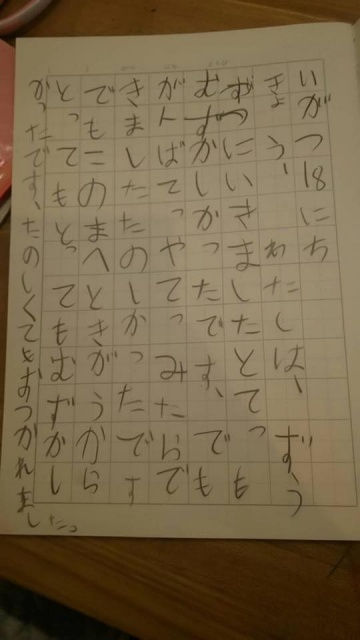 いがつ18にち
きょう、わたしは、ずう
ずつにいきましたとてっも
むずかしかったです、でも
がんばてっやてっみたらで
きましたたのしかったです
でもこのまへときがうから
とってもとってもむずかし
かったです、たのしくてとおつかれました。